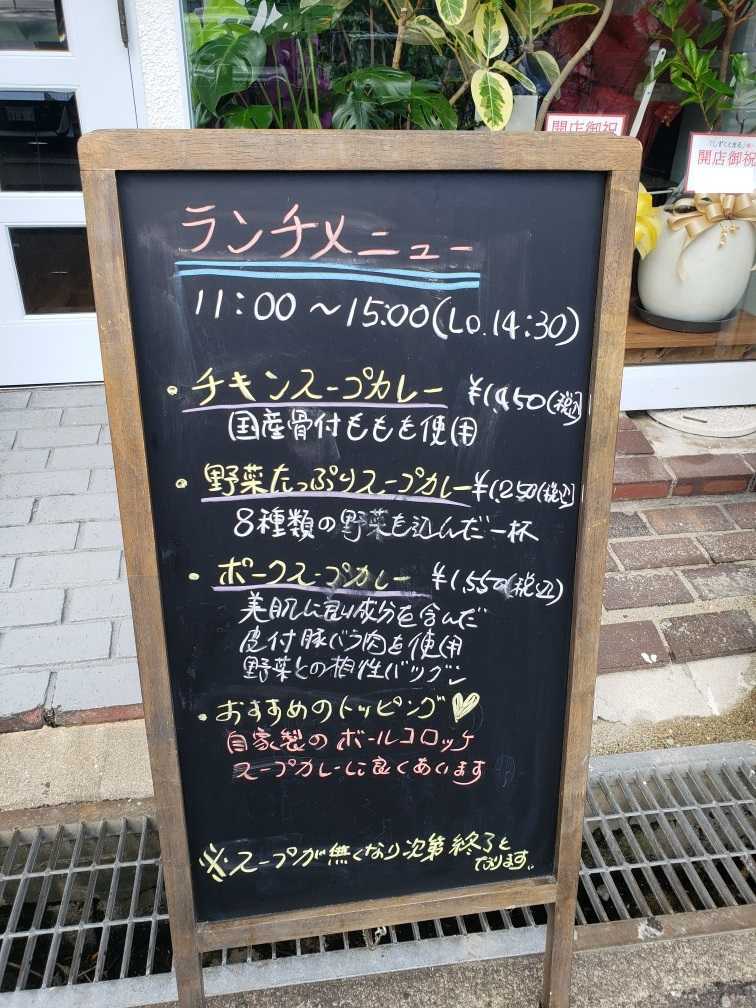 開店御祝
開店御祝
ランチメニュー
11:00 〜15:00(Lo.14:30)
・チキンスープカレー ¥1,450(税込)
国産骨付ももを使用
・野菜たっぷりスープカレー ¥1,250(税込)
8種類の野菜も込んだ一杯
・ポークスープカレー ¥1,550(税込)
美肌に良い成分を含んだ
皮付豚バラ肉を使用
野菜との相性バツグン
・おすすめのトッピング♡
自家製のボールコロッケ
スープカレーに良くあいます
※スープが無くなり次第終了と
なります。